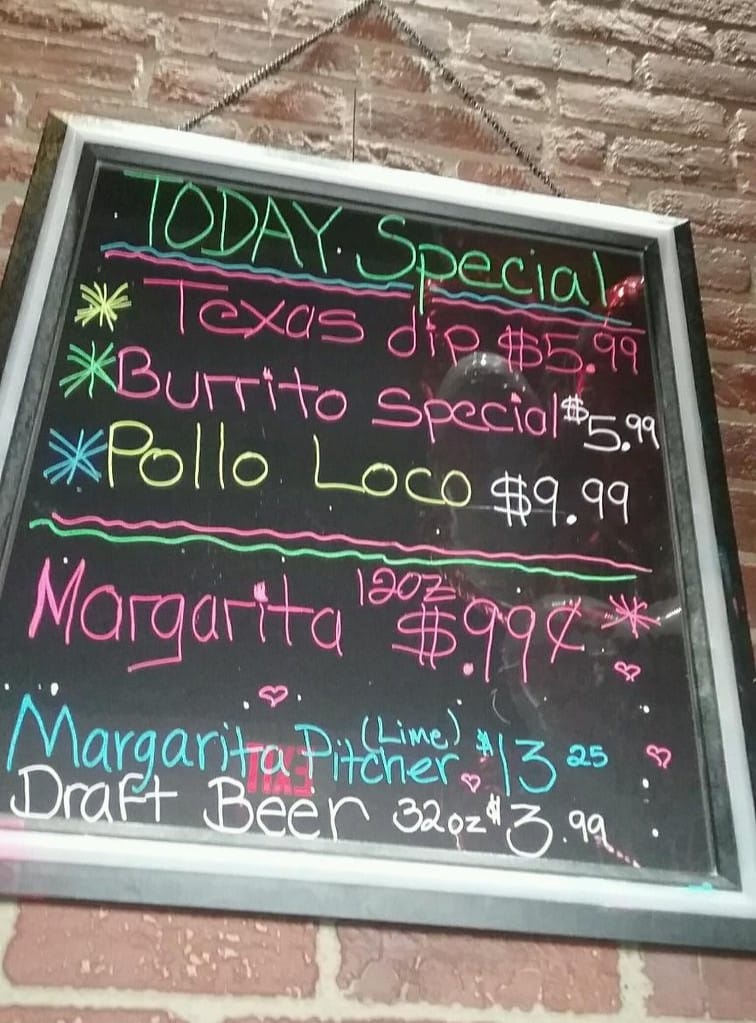 TODAY Special
Texas dip $5.99
Burrito Special $5.99
Pollo Loco $9.99
Margarita 12oz $.99¢
Margarita Pitcher (Lime) $13 25
Draft Beer 32oz $3.99
EXIT